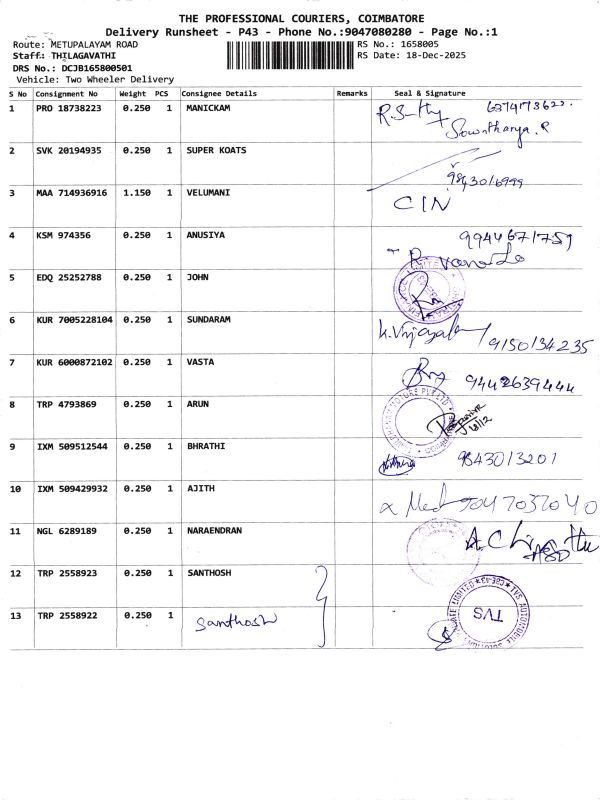 THE PROFESSIONAL COURIERS, COIMBATORE
Delivery Runsheet - P43 - Phone No.:9047080280 - Page No.:1
Route: METUPALAYAM ROAD RS No.: 1658005
Staff: THILAGAVATHI RS Date: 18-Dec-2025
DRS No.: DCJB165800501
Vehicle: Two Wheeler Delivery
S No Consignment No Weight PCS Consignee Details Remarks Seal & Signature
1 PRO 18738223 0.250 1 MANICKAM
Sowntharya.R
2 SVK 20194935 0.250 1 SUPER KOATS
9843016999
3 MAA 714936916 1.150 1 VELUMANI CIN
4 KSM 974356 0.250 1 ANUSIYA 9944671759
5 EDQ 25252788 0.250 1 JOHN
6 KUR 7005228104 0.250 1 SUNDARAM
9150134235
7 KUR 6000872102 0.250 1 VASTA 9442639444
8 TRP 4793869 0.250 1 ARUN
9 IXM 509512544 0.250 1 BHRATHI 9843013201
10 IXM 509429932 0.250 1 AJITH
11 NGL 6289189 0.250 1 NARAENDRAN
12 TRP 2558923 0.250 1 SANTHOSH
13 TRP 2558922 0.250 1 Santhosh TVS